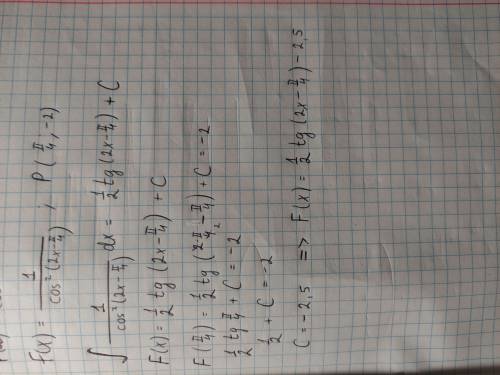 F(x) = 1/cos²(2x-π/4) ; P(π/4, -2)
∫ 1/cos²(2x-π/4) dx = 1/2 tg(2x-π/4) + C
F(x) = 1/2 tg(2x-π/4) + C
F(π/4) = 1/2 tg(2·π/4 - π/4) + C = -2
1/2 tg π/4 + C = -2
1/2 + C = -2
C = -2,5 => F(x) = 1/2 tg(2x-π/4) - 2,5